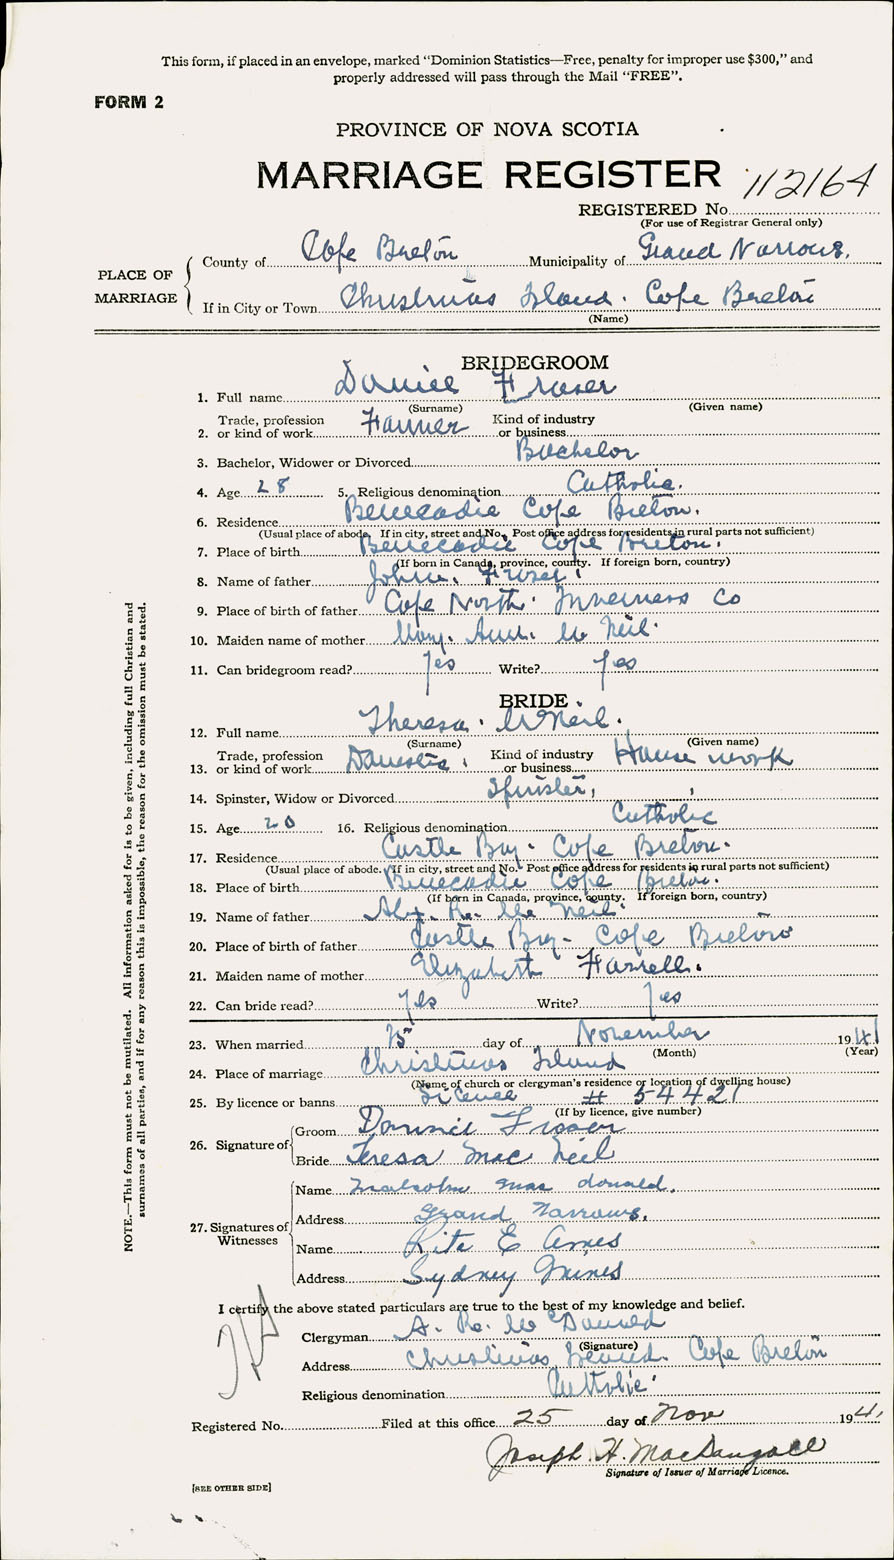 This form, if placed in an envelope, marked "Dominion Statistics—Free, penalty for improper use $300," and
properly addressed will pass through the Mail "FREE".
FORM 2
PROVINCE OF NOVA SCOTIA
MARRIAGE REGISTER
112164
REGISTERED No.
(For use of Registrar General only)
PLACE OF MARRIAGE
County of Cape Breton Municipality of Grand Narrows.
If in City or Town Christmas Island. Cape Breton
(Name)
BRIDEGROOM
1. Full name Daniel Fraser
(Surname) (Given name)
2. Trade, profession or kind of work Farmer Kind of industry or business
3. Bachelor, Widower or Divorced Bachelor
4. Age 28 5. Religious denomination Catholic.
6. Residence Benecadie Cape Breton.
(Usual place of abode. If in city, street and No. Post office address for residents in rural parts not sufficient)
7. Place of birth Benecadie Cape Breton.
(If born in Canada, province, county. If foreign born, country)
8. Name of father John. Fraser.
9. Place of birth of father Cape North. Inverness Co
10. Maiden name of mother Mary. Ann. Mc Neil.
11. Can bridegroom read? yes Write? yes
BRIDE
12. Full name Theresa. McNeil.
(Surname) (Given name)
13. Trade, profession or kind of work Domestic. Kind of industry or business House work
14. Spinster, Widow or Divorced Spinster,
15. Age 20 16. Religious denomination Catholic
17. Residence Castle Bay. Cape Breton.
(Usual place of abode. If in city, street and No. Post office address for residents in rural parts not sufficient)
18. Place of birth Benecadie Cape Breton.
(If born in Canada, province, county. If foreign born, country)
19. Name of father Alex. Mc Neil.
20. Place of birth of father Castle Bay. Cape Breton
21. Maiden name of mother Elizabeth Farrell.
22. Can bride read? Yes Write? Yes
23. When married day of November 1941
(Month) (Year)
24. Place of marriage Christmas Island
(Name of church or clergyman's residence or location of dwelling house)
25. By licence or banns Licence # 54421
(If by licence, give number)
26. Signature of
Groom Fraser
Bride Teresa Mac Neil
27. Signatures of Witnesses
Name Malcolm Mac donald.
Address Grand Narrows.
Name Rita E
Address Sydney Mines
I certify the above stated particulars are true to the best of my knowledge and belief.
Clergyman A. Mc Donald
(Signature)
Address Christmas Island. Cape Breton
Religious denomination Catholic.
Registered No. Filed at this office 25 day of Nov 1941
Joseph. H. MacDougall
Signature of Issuer of Marriage Licence.
[SEE OTHER SIDE]
NOTE.—This form must not be mutilated. All information asked for is to be given, including full Christian and
surnames of all parties, and if for any reason this is impossible, the reason for the omission must be stated.